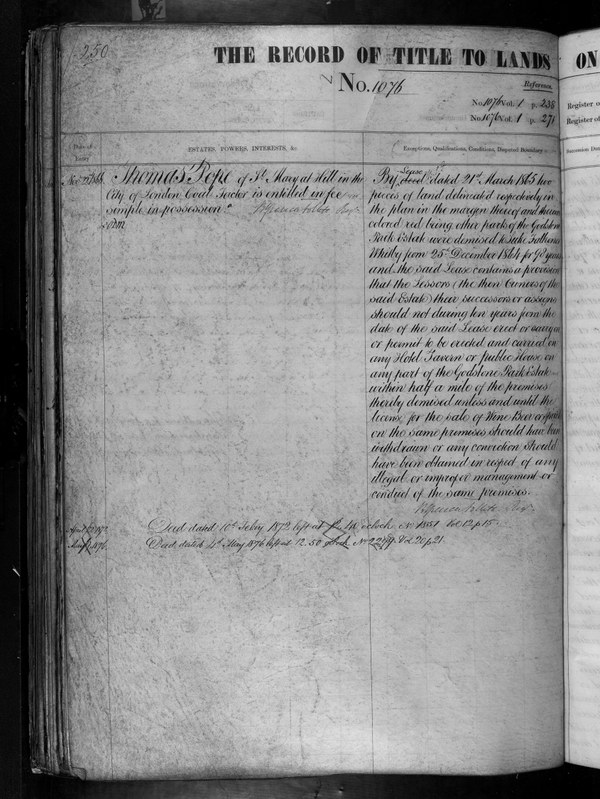 250
THE RECORD OF TITLE TO LANDS
ON
No. 1076
Reference.
No. 1076 Vol. 1 p. 238
No. 1076 Vol. 1 p. 271
Register
Register of
Date of Entry
ESTATES, POWERS, INTERESTS, &c.
Exceptions, Qualifications, Conditions, Disputed Boundary
Thomas Pope of St. Mary at Hill in the
City of London Coal Factor is entitled in fee
simple in possession.
By Lease dated 21st March 1865 two
pieces of land delineated respectively in
the plan in the margin thereof and thereon
colored red being other parts of the Godstone
Park Estate were demised to Luke
Whitby from 25th December 1864 for 90 years
and the said Lease contains a provision
that the Lessors (the then Owners of the
said Estate) their successors or assigns
should not during ten years from the
date of the said Lease erect or carry on
or permit to be erected and carried on
any Hotel Tavern or public House on
any part of the Godstone Park Estate
within half a mile of the premises
thereby demised unless and until the
license for the sale of Wine Beer or spirits
on the same premises should have been
withdrawn or any conviction should
have been obtained in respect of any
illegal or improper management or
conduct of the same premises.
Deed dated 10th Feby 1872 left at o'clock No 1351 Vol 12 p 15
1876 Deed dated 4th May 1876 left at 12.50 o'clock No 2249 Vol 20 p 21